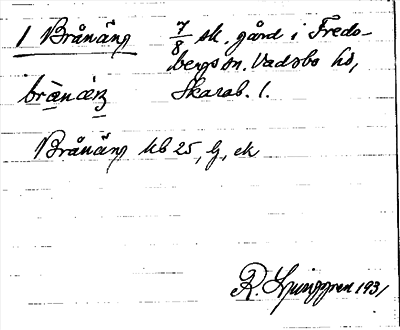 1 Brånäng 7/8 sk. gård i Freds-
bergs sn. Vadsbo hd,
brånäŋ Skarab. l.
Brånäng kb 25, G, ek
R. Ljunggren 1931